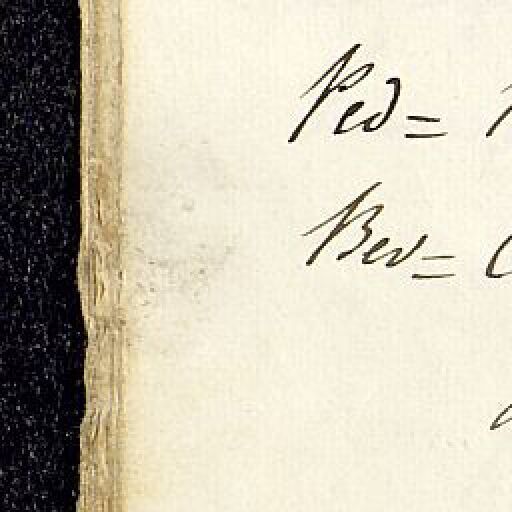 Ped=
Bev=